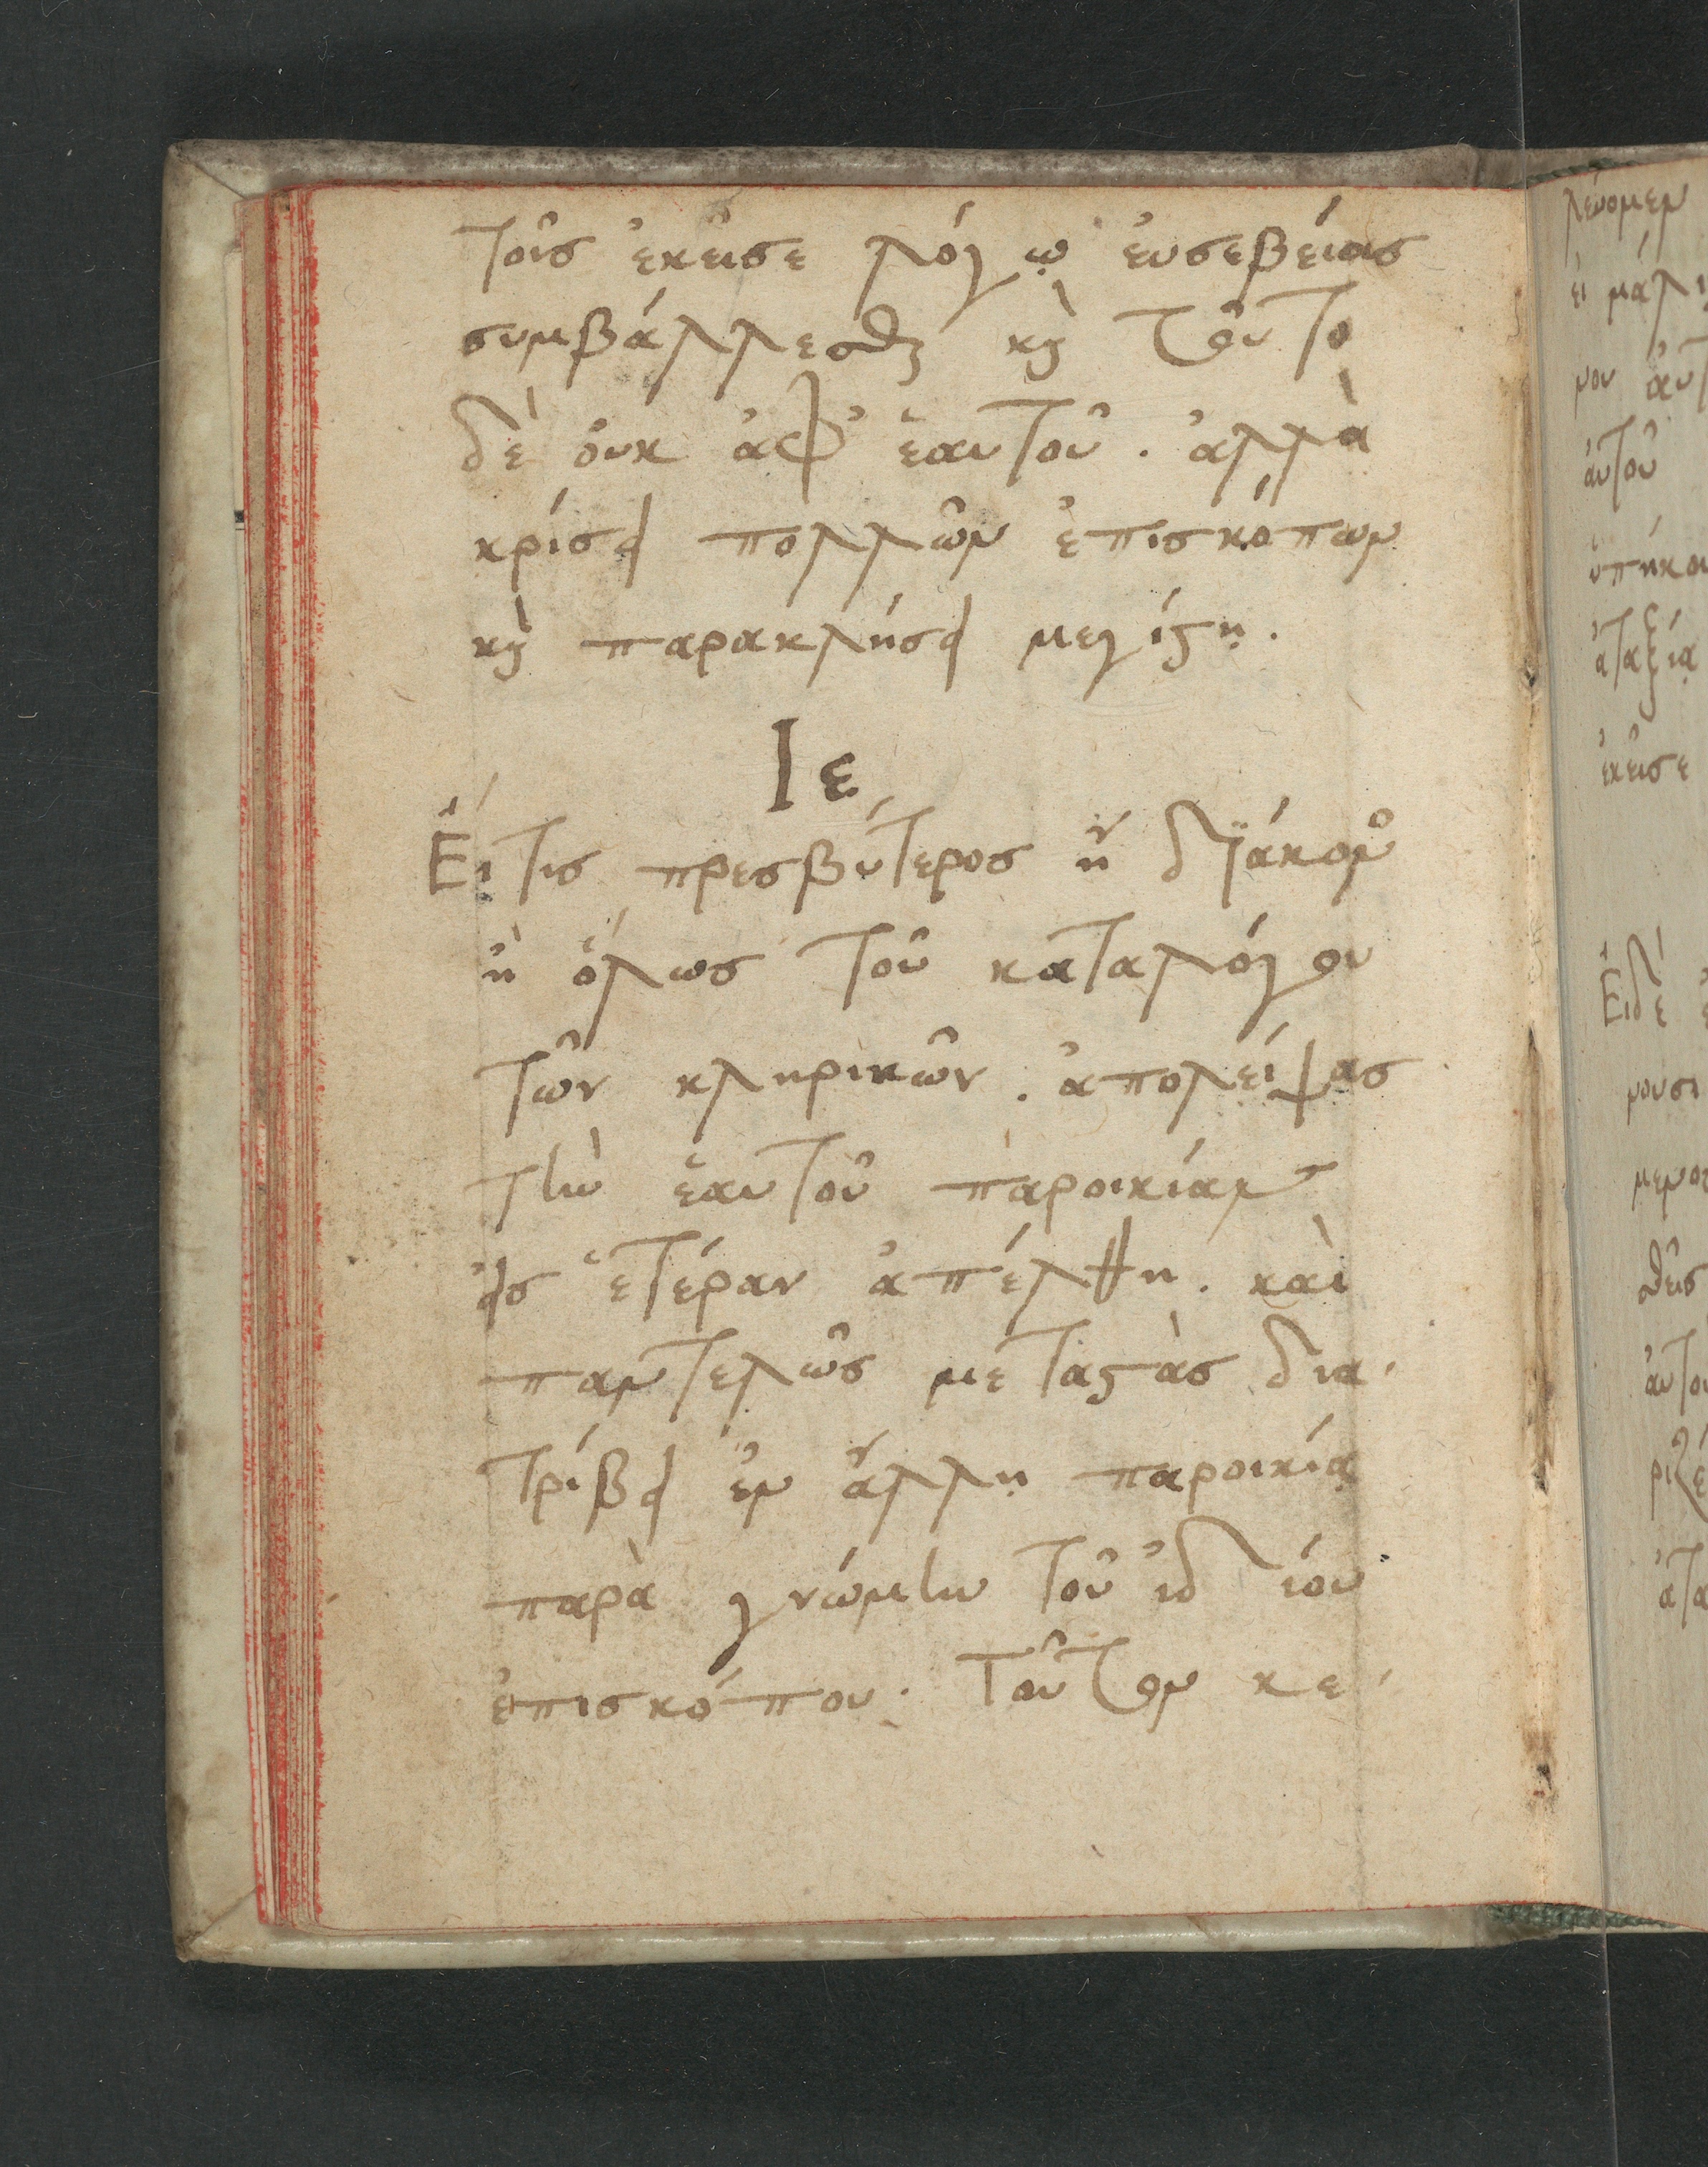 τοῖσ ἐκεῖσε λόγῳ ἐυσεβείασ
συμβάλλεσθαι καὶ τοῦτο
δὲ ὀυκ ἀφ' ἑαυτοῦ . ἀλλὰ
κρίσει πολλῶν ἐπισκόπων
καὶ παρακλήσει μεγίστῃ .
Ιε
Ἔι τισ πρεσβύτεροσ ἢ διάκονος
ἢ ὅλωσ τοῦ καταλόγου
τῶν κληρικῶν . ἀπολείψασ
τὴν ἑαυτοῦ παροικίαν
εἰσ ἑτέραν ἀπέλθῃ . καὶ
παντελῶσ μεταστὰσ δια-
τρίβει ἐν ἄλλῃ παροικίᾳ
παρὰ γνώμην τοῦ ἰδίου
ἐπισκόπου . τοῦτον κε-
λεύομεν
ἐι μάλι
μου ἀυτ
ἀυτοῦ
ὑπήκου
ἀταξίᾳ
ἐκεῖσε
Ἐι δὲ
μουσι
μενοσ
θεὶσ
ἀυτου
ριζέ
ἀτα